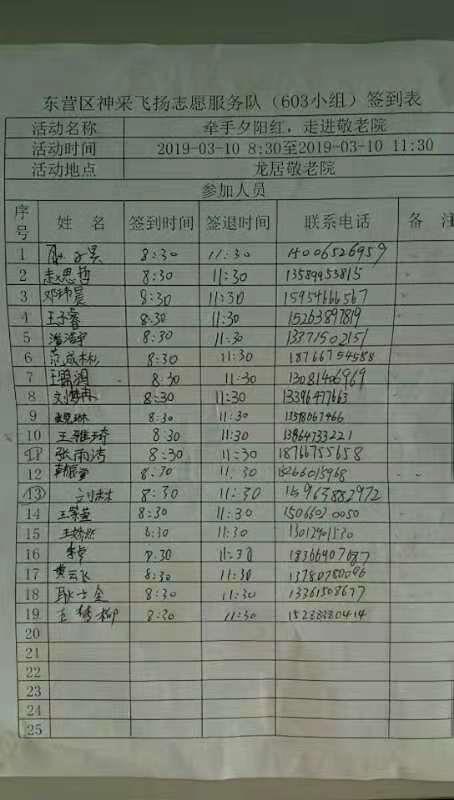 东营区神采飞扬志愿服务队（603小组）签到表
活动名称 牵手夕阳红，走进敬老院
活动时间 2019-03-10 8:30至2019-03-10 11:30
活动地点 龙居敬老院
参加人员
序号 姓 名 签到时间 签退时间 联系电话 备 注
1 8:30 11:30
2 赵思哲 8:30 11:30 13589953815
3 邓玮晨 8:30 11:30 15954666567
4 王子睿 8:30 11:30 15263897819
5 浩宇 8:30 11:30 13371502151
6 范成彬 8:30 11:30 18766754588
7 8:30 11:30 13081406969
8 刘 8:30 11:30 13396477663
9 8:30 11:30
10 王雅琦 8:30 11:30 13864733221
11 张雨涛 8:30 11:30 18766755658
12 8:30 11:30
13 刘 8:30 11:30
14 王 8:30 11:30
15 王 8:30 11:30
16 8:30 11:30
17 黄云飞 8:30 11:30
18 耿士全 8:30 11:30 13361508677
19 8:30 11:30
20
21
22
23
24
25